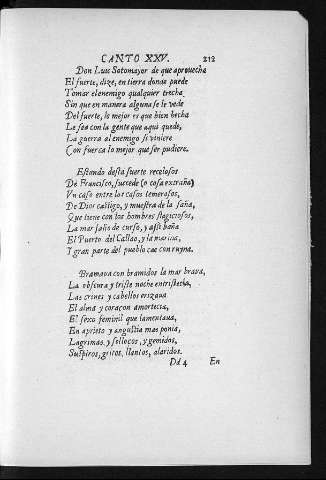 CANTO XXV. 212
Don Luis Sotomayor de que aprouecha
El fuerte, dize, en tierra donde puede
Tomar el enemigo qualquier trecha
Sin que en manera alguna se le vede
Del fuerte, lo mejor es que bien hecha
Le sea con la gente que aqui quede,
La guerra al enemigo si viniere
Con fuerça lo mejor que ser pudiere.
Estando desta suerte recelosos
De Francisco, sucede (o cosa estraña)
Vn caso entre los casos temerosos,
De Dios castigo, y muestra de su saña,
Que tiene con los hombres flagiciosos,
La mar salio de curso, y assi baña
El Puerto del Callao, y la marina,
Y gran parte del pueblo cae con ruyna.
Bramaua con bramidos la mar braua,
La obscura y triste noche entristecia,
Las crines y cabellos erizaua
El alma y coraçon amortecia,
El sexo feminil que lamentaua,
En aprieto y angustia mas ponia,
Lagrimas, y sollocos, y gemidos,
Suspiros, gritos, llantos, alaridos.
Dd 4 En